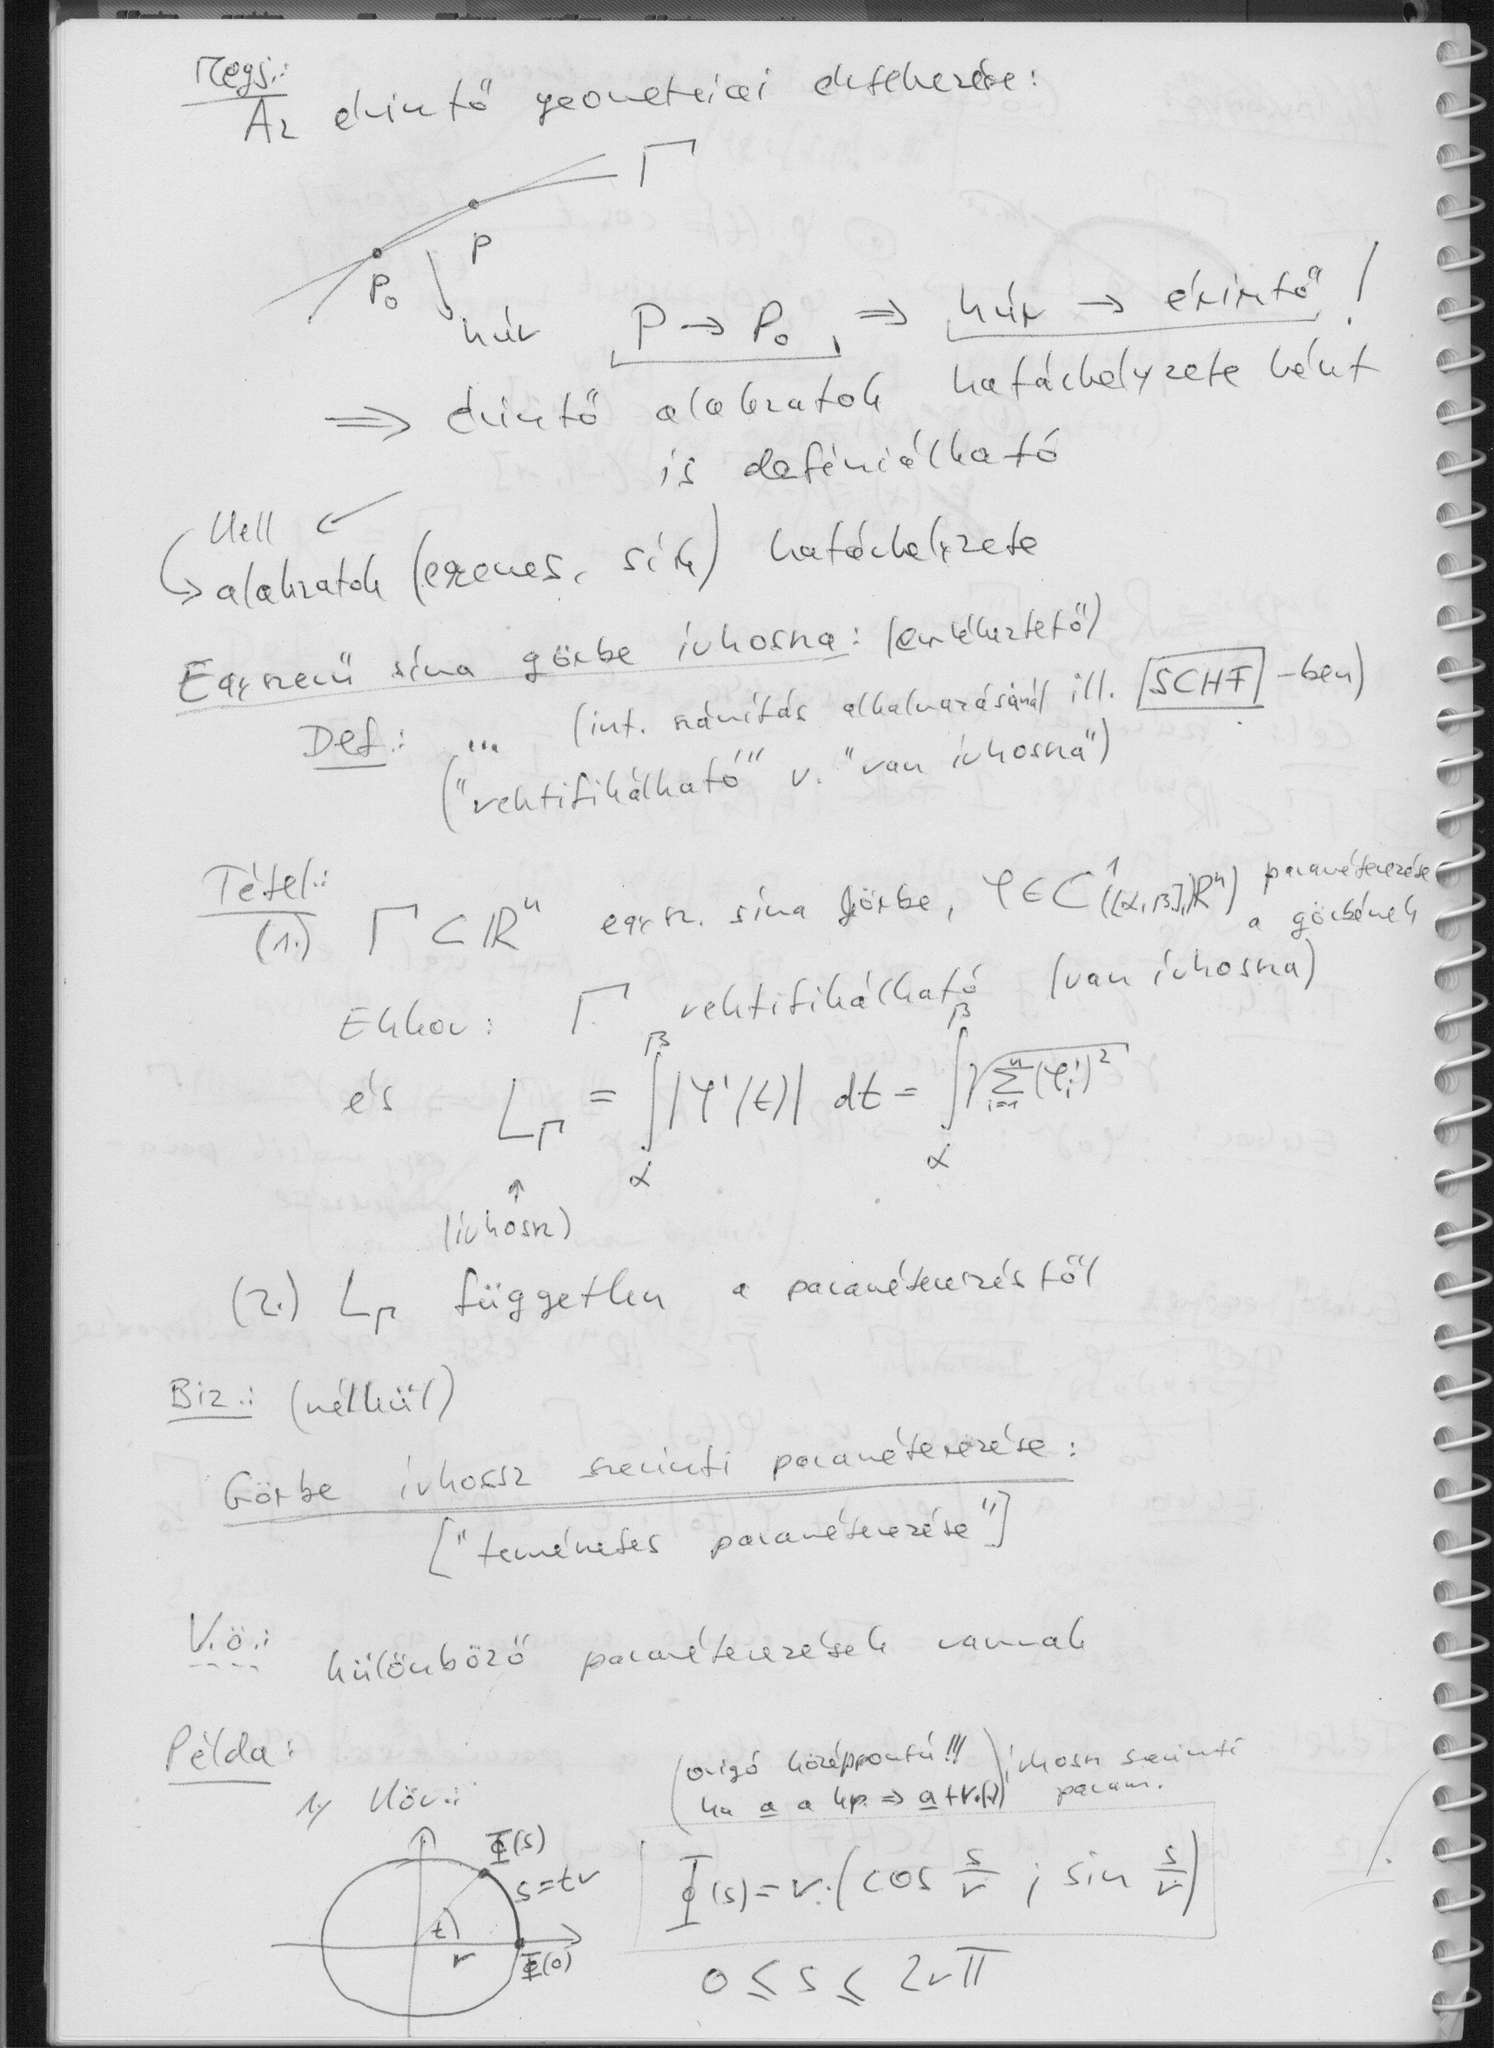 Megj.:
Az érintő geometriai értelmezése:
Γ
P
P₀
húr P → P₀ ⇒ húr → érintő !
⇒ érintő alakzatok határhelyzeteként
is definiálható
Kell
alakzatok (egyenes, sík) határhelyzete
Egyszerű sima görbe ívhossza: (emlékeztető)
Def.: ... (int. számítás alkalmazásánál ill. SCHF -ben)
("rektifikálható" v. "van ívhossza")
Tétel.:
(1.) Γ ⊂ ℝⁿ egysz. sima görbe, φ ∈ C¹([α,β],ℝⁿ) paraméterezése
a görbének
Ekkor: Γ rektifikálható (van ívhossza)
és L_Γ = ∫_α^β |φ'(t)| dt = ∫_α^β √(∑_{i=1}^n (φ_i')²)
↑
(ívhossz)
(2.) L_Γ független a paraméterezéstől
Biz.: (nélkül)
Görbe ívhossz szerinti paraméterezése:
["természetes paraméterezése"]
V.ö.: különböző paraméterezések vannak
Példa:
(origó középpontú!!!
ha a a kp. ⇒ a+r.( )) ívhossz szerinti
param.
1, Kör.:
Φ(s)
s=tr
t
r
Φ(0)
Φ(s) = r.(cos s/r ; sin s/r)
0 ≤ s ≤ 2rπ